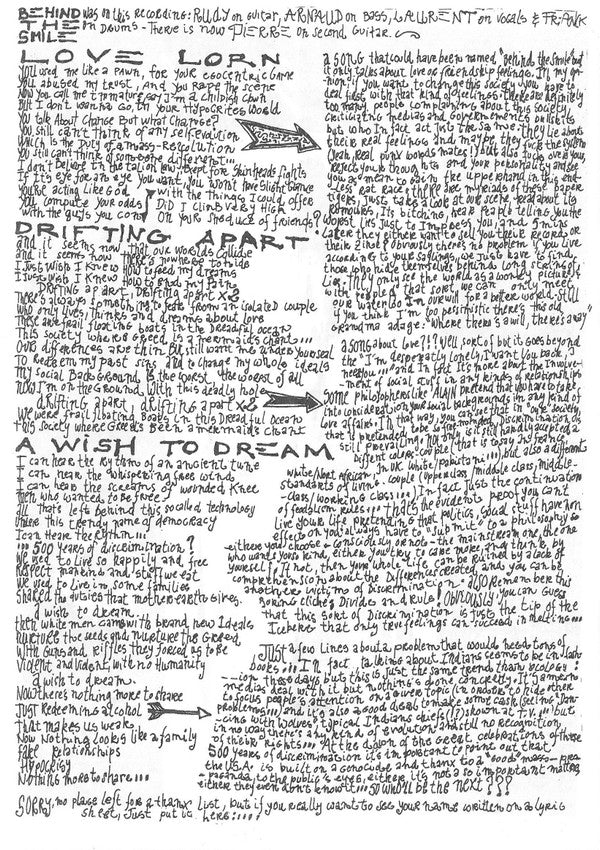 BEHIND THE SMILE
was on this recording: RUDY on guitar, ARNAUD on Bass, LAURENT on vocals & FRANK
on DRUMS - There is now PIERRE on second guitar.
LOVE LORN
YOU used me like a PAWN, for your egocentric game
YOU abused my trust, And you RAPE the scene
Now you call me immature, say I'm a childish clown
BUT I don't wanna go, in your Hypocrites World
YOU talk About Change But what Change?
YOU still can't think of any self-Evolution
Which is the Duty of a mass-Revolution
YOU still can't think of someone different...
I don't believe in that tale now, kept for Skinheads fights
If it's eye for an eye you want, you won't have slight chance
You're acting like God
You compute your odds
with the guys you con
with the things I could offer
DID I climb very high
On your sauce of friends?
a song that could have been named "Behind the smile" but
it only talks about love or friendship feelings. In my opi-
nion: if you want to change this society, you have to
deal first with that kind of feelings. There are definitely
too many people complaining about this society,
Criticizing medias and Governements on lists
but who in fact act just the same: they lie about
their real feelings and maybe, they fuck the system
(yeah, real punk bonds mates!) but also fucks over you,
rejects your thoughts and your personality and be
you agement to gain the upperhand in this end-
less rat race! There are myriads of these paper
tigers, just take a look at our scene, read about its
rumours, its bitching, hear people telling you the
worst lies just to impress you, and 5 mins
later they either want to sell you their records, or
their zine? Obviously there's no problem if you live
according to your sayings, we just have to find
those who hide themselves behind long cutings of
lies. They only see the world as a looney picture
with people of that sort, we can only meet
our waterloo in our will for a better world. Still
if you think I'm too persimistic there's this old
grandma adage: "where there's a will, there's a way"
DRIFTING APART
and it seems now that our worlds collide
and it seems now there's nowhere to hide
I just wish I knew How to feed my dreams
I just wish I knew How to end my pain
DRIFTING apart, DRIFTING apart x2
There's always something to fear from an isolated couple
who only lives, thinks and dreams about love
These are frail floating boats in the dreadful ocean
This society where is GREED is a mermaid's chant...
Our differences are thin but still want me under your seal
To redeem my past sins and to change my whole ideals
My social Background is the worst the worst of all
Now I'm on the ground, with this deadly hole
drifting apart, drifting apart x2
we were frail floating Boats, in this dreadful ocean
this society where Greed's Been a mermaid's chant
a song about love?!? Well, sort of but it goes beyond
the "I'm desperately lonely, I want you back, I
need you..." and in fact It's more about the involve-
ment of social stuff in any kinds of relationship
SOME philosophers like ALAIN pretend that you have to take
into consideration your social backgrounds in any kind of
love affairs. In that way, you can see that in "our" society,
that is pretending to be open-minded, Discrimination is
still prevailing, not only is it still hard to accept a
different color couple (that is to say in France,
white/North African, in UK white/pakistani...) but also a different
standards of living couple (upperclass/middle class, middle-
class/working class...) In fact just the continuation
of feodalism rules... that's the evident proof you can't
live your life pretending that politics, social stuff have non
effects on you! always have to "submit" to a philosophy so
either you choose - consciously or not - the mainstream one, the one
who want your kind, either you try to care more, and think by
yourself! If not, then your whole life can be ruined by a lack of
comprehension about the differences created and you can be
another victims of Discrimination. Also Remember this
boring cliché: Divide and Rule! OBVIOUSLY, you can guess
that this sort of Discrimination is just the tip of the
Iceberg that only true feelings can succeed in melting...
A WISH TO DREAM
I can hear the rythms of an ancient tune
I can hear the whispering free wind
I can hear the screams of wounded Knee
Then who wanted to be free?
all that's left behind this so called technology
Under this trendy name of democracy
I can Hear the rythm...
...500 years of discrimination?
We used to live so happily and free
respect mankind and stuff we eat
We used to live in some families
Shared the duties that motherearth gives.
I wish to dream...
then white men came with brand new Ideals
nurture the seeds and nurture the Greed
With Guns and riffles they forced us to be
Violent and violent, with no Humanity
I wish to dream.
Now there's nothing more to share
Just redeeming alcohol
That makes us weak
Now nothing looks like a family
fake relationships
Hypocrisy
Nothing more to share...
Just a few lines about a problem that would need tons of
books... In fact, talking about Indians seems to be in fash-
-ion those days but this is just the same trend than ecology:
medias deal with it but nothing's done concretly. It's a mean
to focus people's attention on a lower topic (in order to hide other
problems...) and it's also a good deal to make some cash (seing "Dan-
cing with Wolves", typical Indians chiefs (!?) shown at T.V.... but
in no way there's any kind of evolution and still no recognition
of their rights... At the dawn of the great celebrations of those
500 years of discrimination it's important to point out that
the U.S.A. is built on a genocide and thanx to a "good" mass-prea
-paganda, to the public's eyes, either it's not a so important matter,
either they even don't know it... so who'll be the next???
SORRY, no place left for a thanx list, but if you really want to see your name written on a lyric
sheet, Just put it here:....: